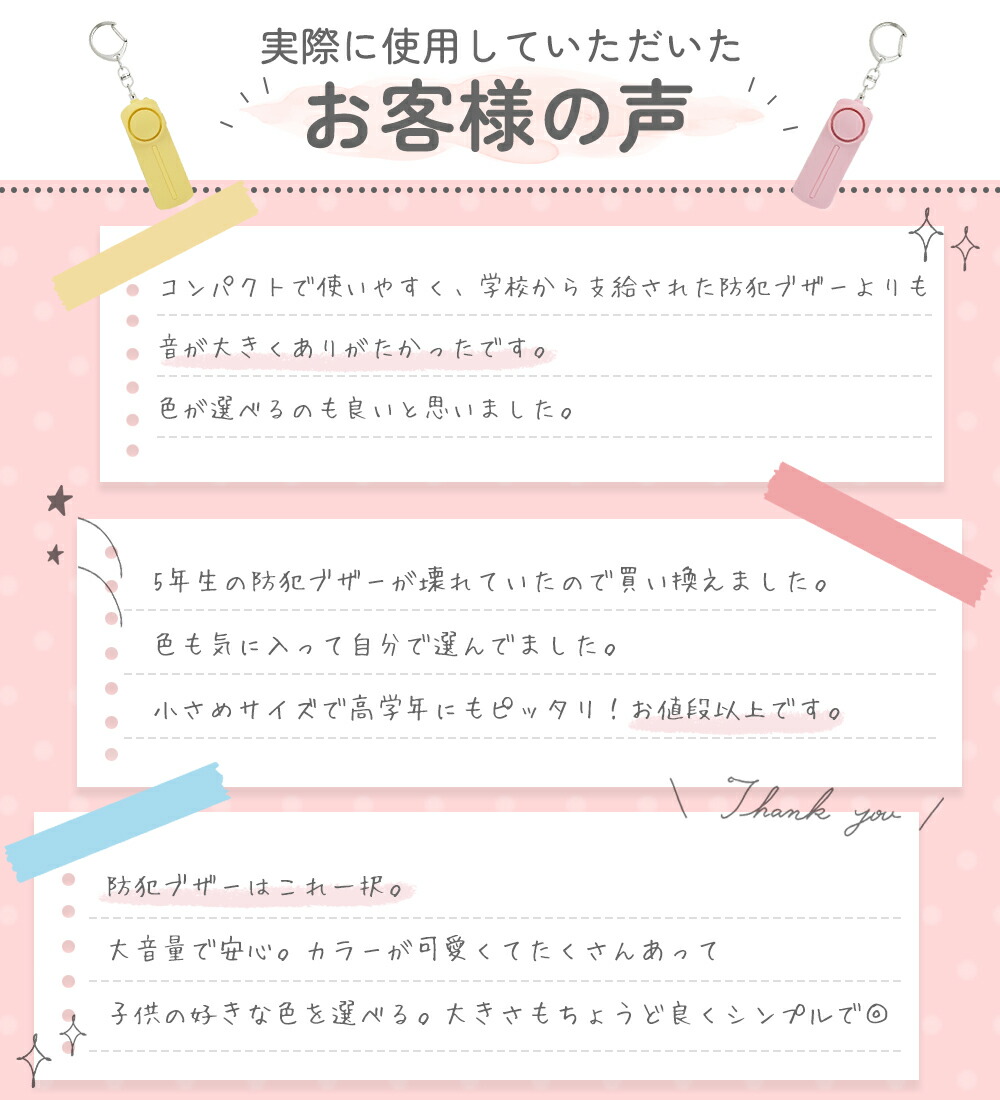 実際に使用していただいた
お客様の声
コンパクトで使いやすく、学校から支給された防犯ブザーよりも
音が大きくありがたかったです。
色が選べるのも良いと思いました。
5年生の防犯ブザーが壊れていたので買い換えました。
色も気に入って自分で選んでました。
小さめサイズで高学年にもピッタリ！お値段以上です。
Thank you
防犯ブザーはこれ一択。
大音量で安心。カラーが可愛くてたくさんあって
子供の好きな色を選べる。大きさもちょうど良くシンプルで◎